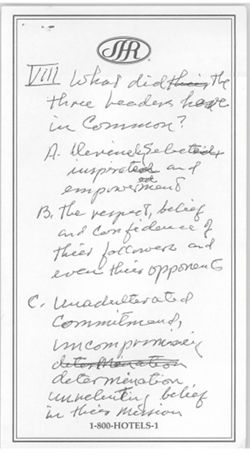 SHR
VIII What did this the
three leaders have
in Common?
A. Devinely Selected
inspirated and
empowerment
B. The respect, belief
and confidence of
thier followers and
even thier opponents
C. Unadulterated
Commitment,
uncompromising
determination
determination
unrelenting belief
in thier mission
1-800-HOTELS-1